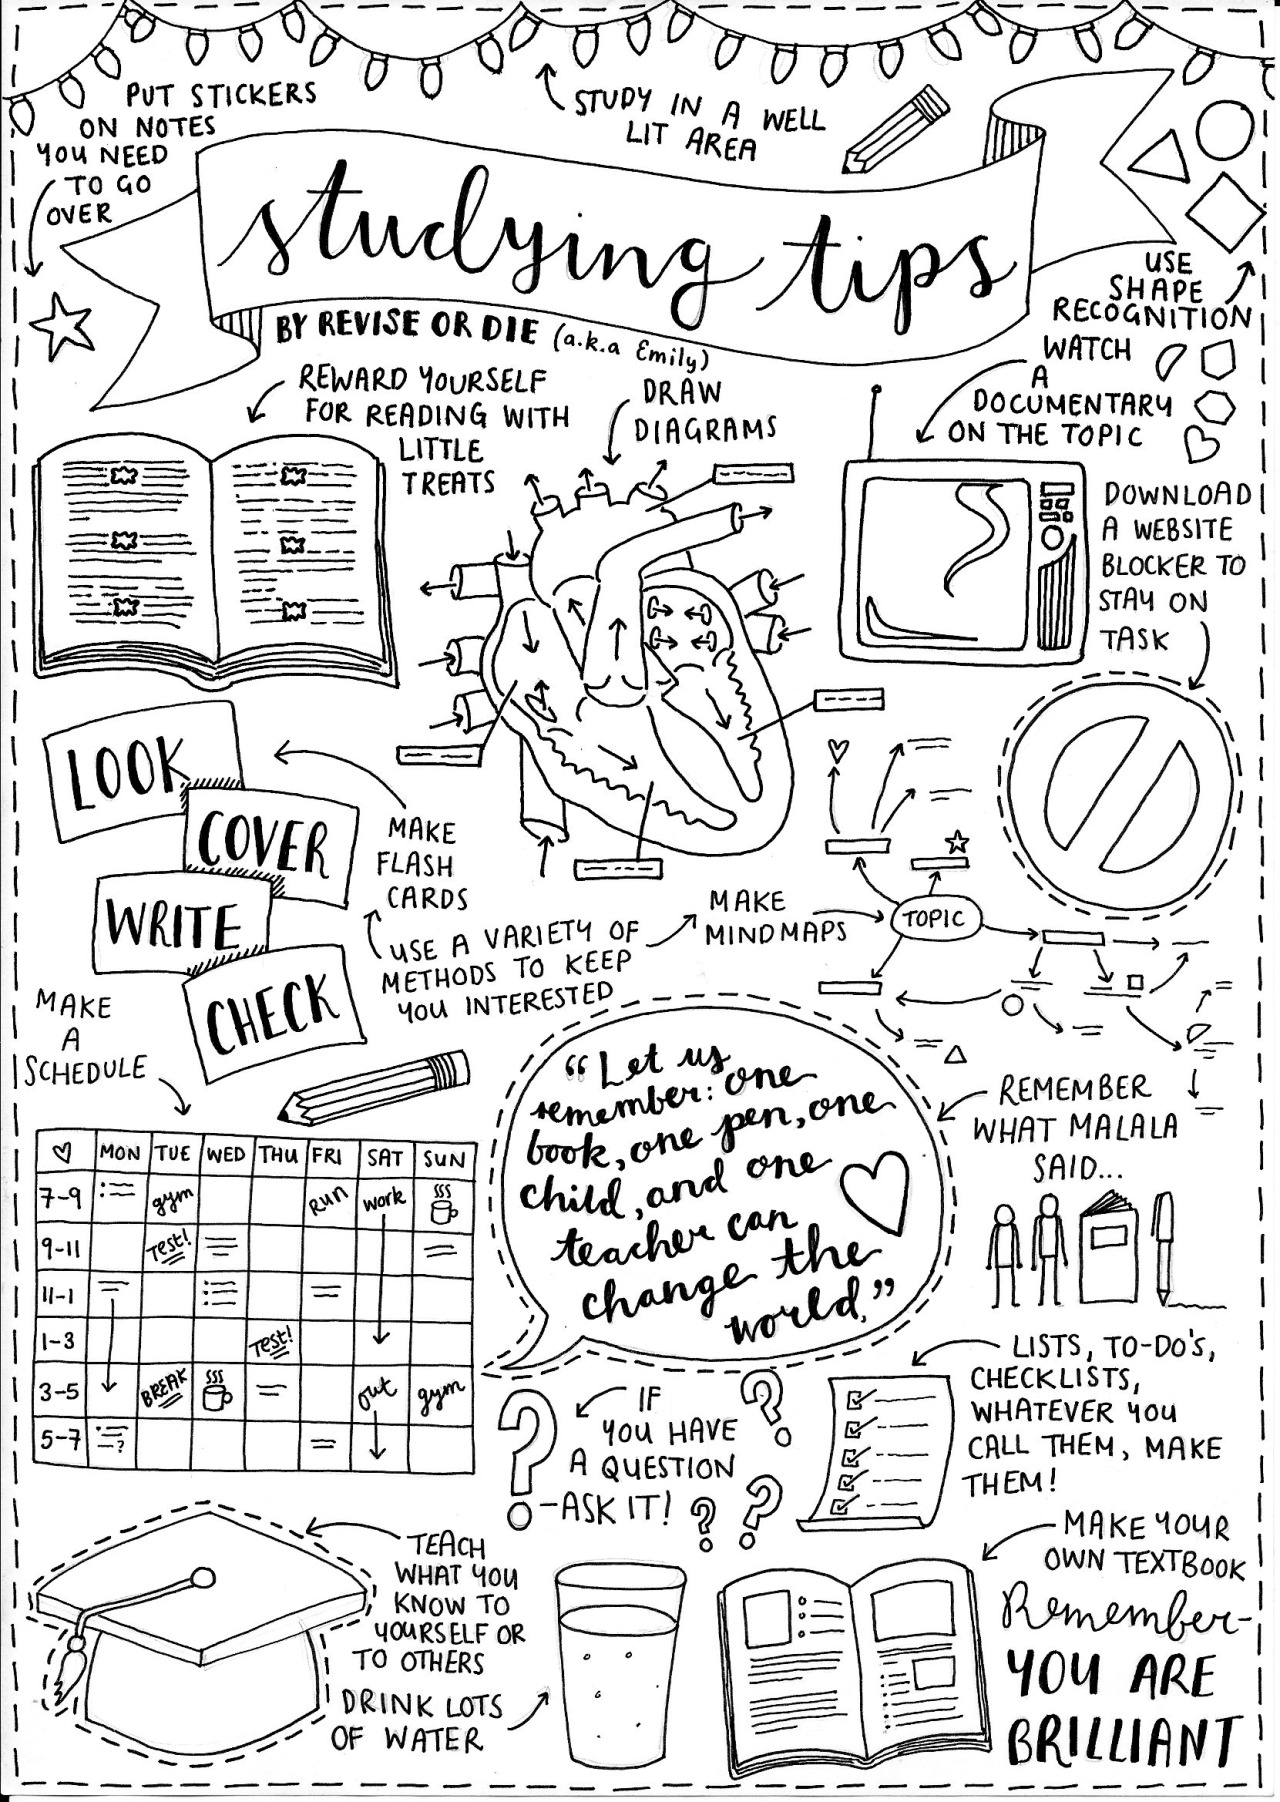 PUT STICKERS
ON NOTES
YOU NEED
TO GO
OVER
STUDY IN A WELL
LIT AREA
studying tips
BY REVISE OR DIE (a.k.a Emily)
USE
SHAPE
RECOGNITION
REWARD YOURSELF
FOR READING WITH
LITTLE
TREATS
DRAW
DIAGRAMS
WATCH
A
DOCUMENTARY
ON THE TOPIC
DOWNLOAD
A WEBSITE
BLOCKER TO
STAY ON
TASK
LOOK
COVER
WRITE
CHECK
MAKE
FLASH
CARDS
USE A VARIETY OF
METHODS TO KEEP
YOU INTERESTED
MAKE
MINDMAPS
TOPIC
MAKE
A
SCHEDULE
MON TUE WED THU FRI SAT SUN
7-9 gym run work
9-11 Test!
11-1
1-3 Test!
3-5 BREAK out gym
5-7 ?
"Let us
remember: one
book, one pen, one
child, and one
teacher can
change the
world."
REMEMBER
WHAT MALALA
SAID...
IF
YOU HAVE
A QUESTION
-ASK IT!
? ? ? ?
LISTS, TO-DO'S,
CHECKLISTS,
WHATEVER YOU
CALL THEM, MAKE
THEM!
TEACH
WHAT YOU
KNOW TO
YOURSELF OR
TO OTHERS
DRINK LOTS
OF WATER
MAKE YOUR
OWN TEXTBOOK
Remember-
YOU ARE
BRILLIANT